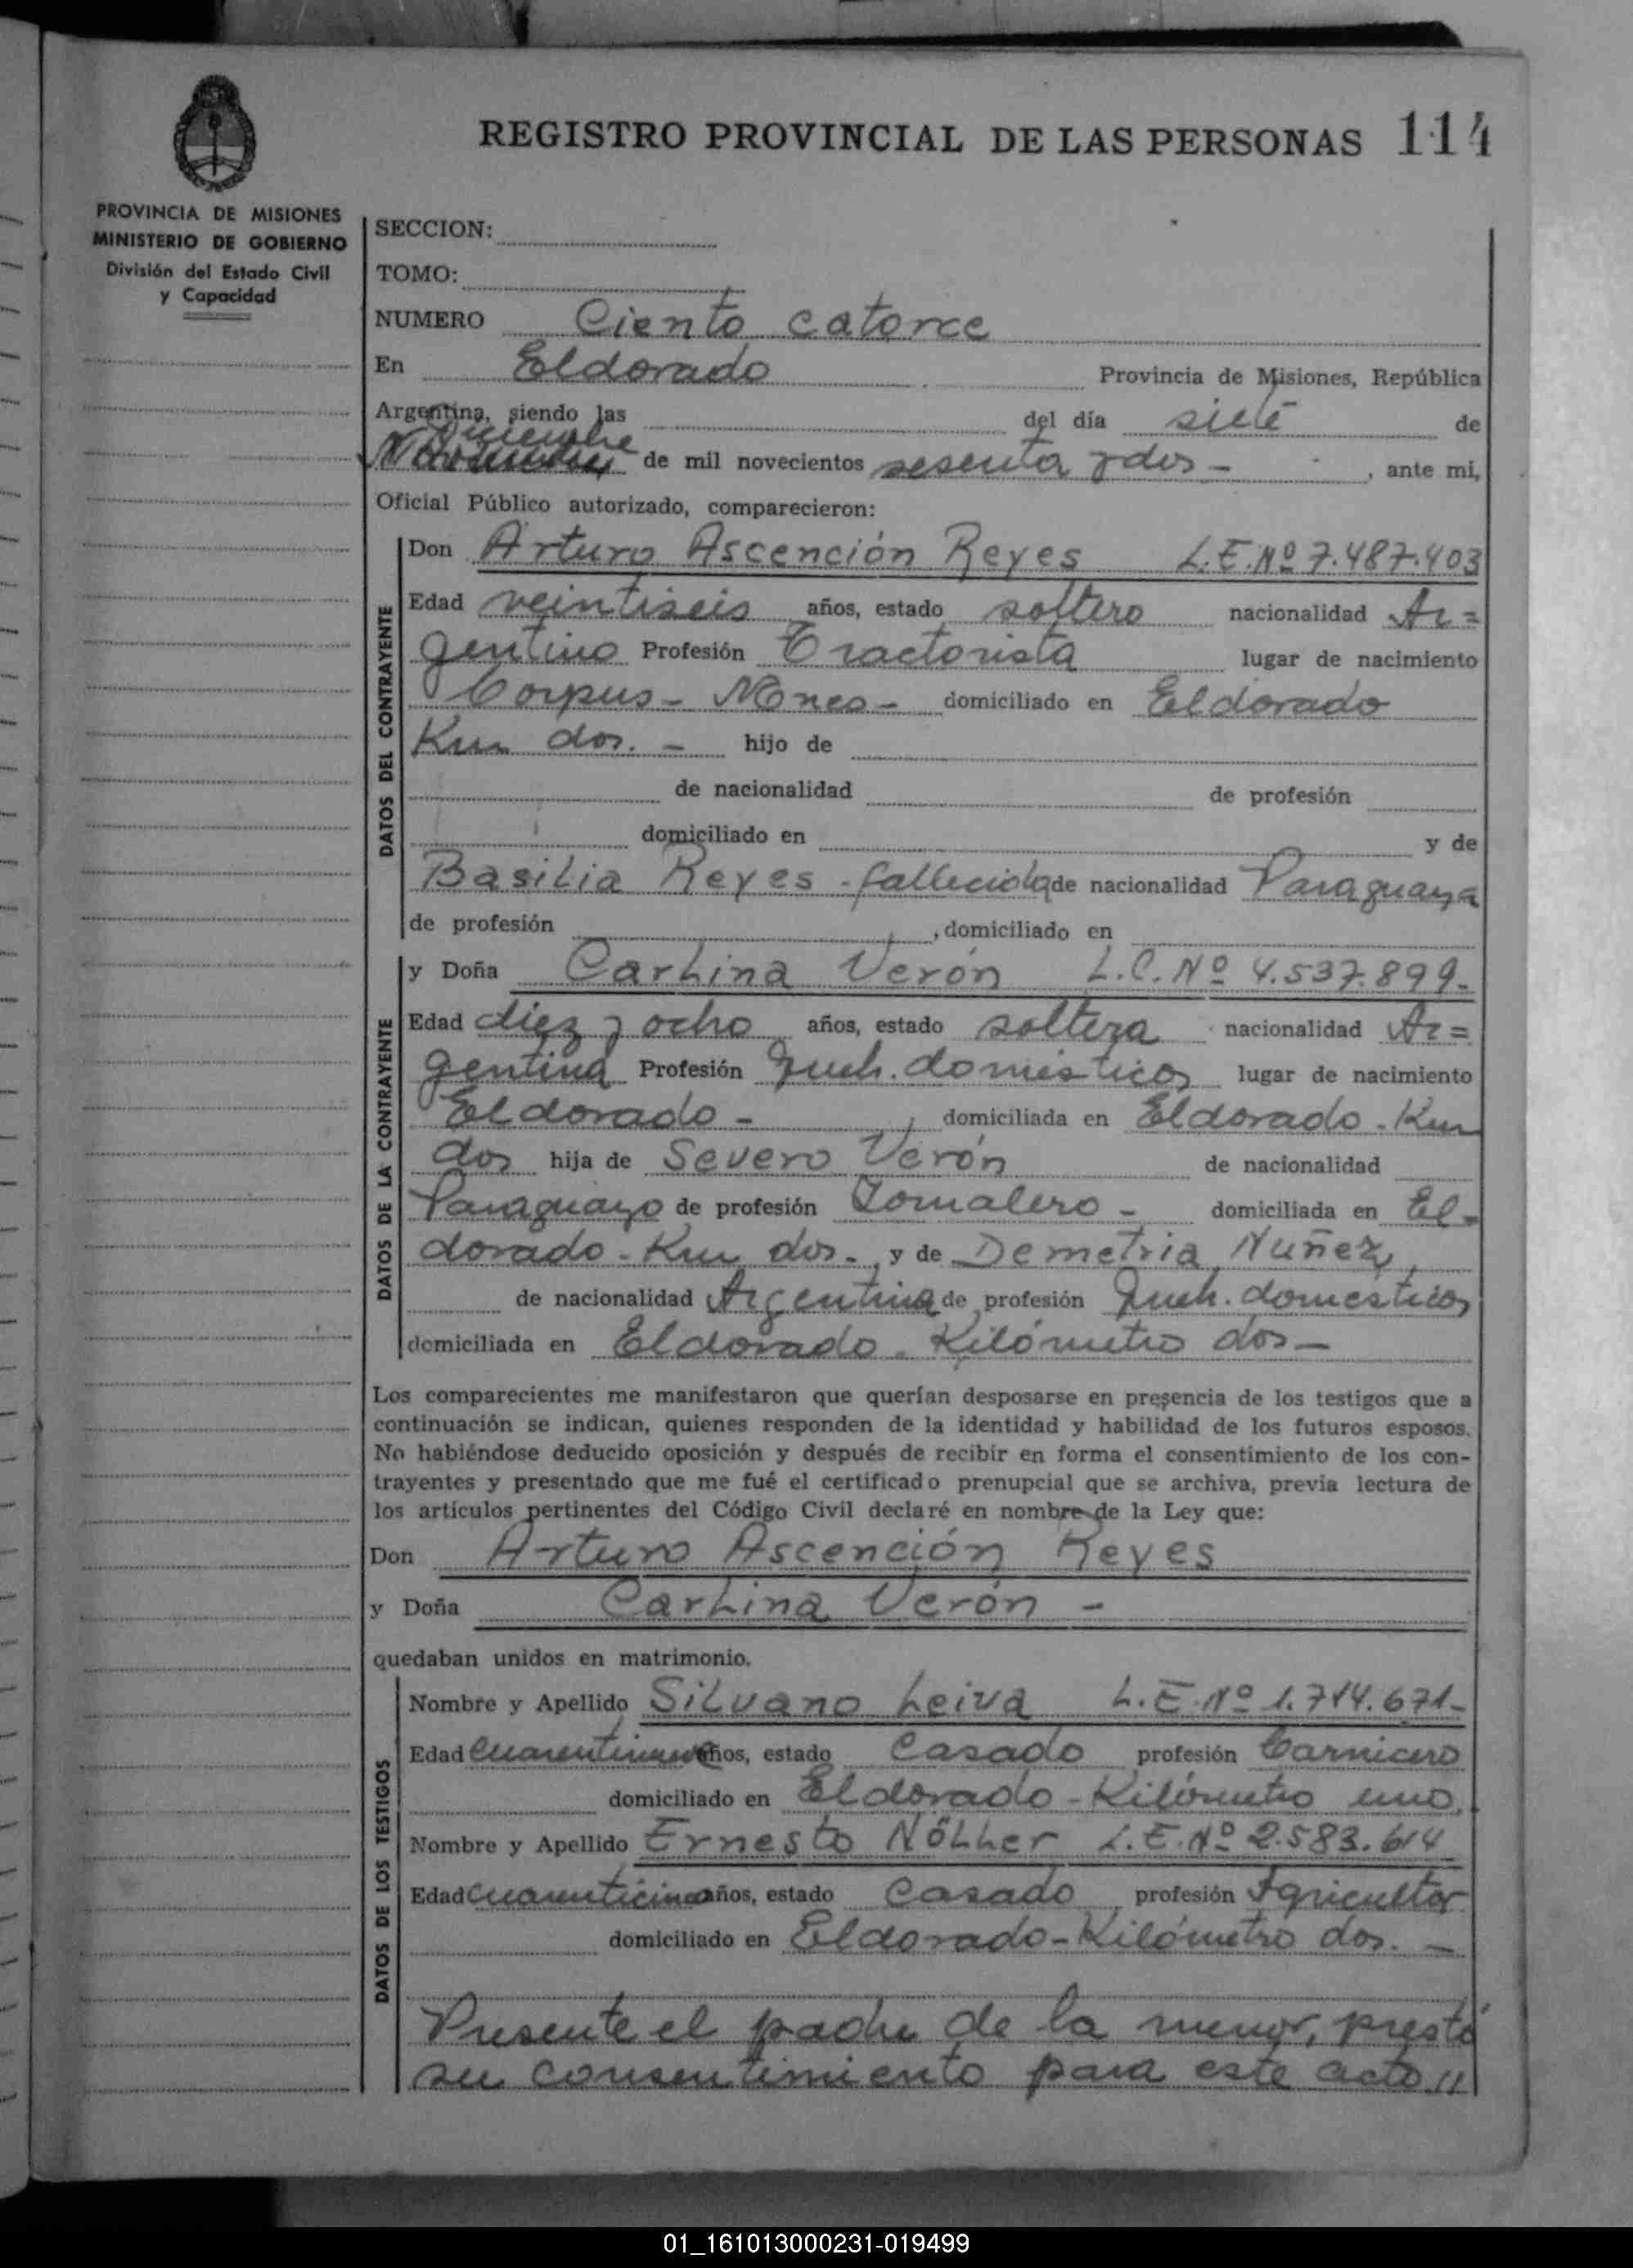 REGISTRO PROVINCIAL DE LAS PERSONAS 114
PROVINCIA DE MISIONES
MINISTERIO DE GOBIERNO
División del Estado Civil
y Capacidad
SECCION:
TOMO:
NUMERO Ciento catorce
En Eldorado Provincia de Misiones, República
Argentina, siendo las del día siete de
Diciembre
Noviembre de mil novecientos sesenta y dos - , ante mi,
Oficial Público autorizado, comparecieron:
DATOS DEL CONTRAYENTE
Don Arturo Ascención Reyes L.E.Nº 7.487.403
Edad veintiseis años, estado soltero nacionalidad Ar=
gentino Profesión Tractorista lugar de nacimiento
Corpus - Mnes - domiciliado en Eldorado
Km dos. - hijo de
de nacionalidad de profesión
domiciliado en y de
Basilia Reyes - fallecida de nacionalidad Paraguaya
de profesión , domiciliado en
DATOS DE LA CONTRAYENTE
y Doña Carlina Verón L.C.Nº 4.537.899-
Edad diez y ocho años, estado soltera nacionalidad Ar=
gentina Profesión Queh. domésticos lugar de nacimiento
Eldorado - , domiciliada en Eldorado - Km
dos hija de Severo Verón de nacionalidad
Paraguayo de profesión Jornalero - domiciliada en El-
dorado - Km dos - , y de Demetria Nuñez,
de nacionalidad Argentina de profesión Queh. domésticos
domiciliada en Eldorado - Kilómetro dos -
Los comparecientes me manifestaron que querían desposarse en presencia de los testigos que a
continuación se indican, quienes responden de la identidad y habilidad de los futuros esposos.
No habiéndose deducido oposición y después de recibir en forma el consentimiento de los con-
trayentes y presentado que me fué el certificado prenupcial que se archiva, previa lectura de
los artículos pertinentes del Código Civil declaré en nombre de la Ley que:
Don Arturo Ascención Reyes
y Doña Carlina Verón -
quedaban unidos en matrimonio.
DATOS DE LOS TESTIGOS
Nombre y Apellido Silvano Leiva L.E.Nº 1.714.671-
Edad cuarentinueve años, estado Casado profesión Carnicero
domiciliado en Eldorado - Kilómetro uno.
Nombre y Apellido Ernesto Nöller L.E.Nº 2.583.614
Edad cuarenticinco años, estado Casado profesión Agricultor
domiciliado en Eldorado - Kilómetro dos. -
Presente el padre de la menor, prestó
su consentimiento para este acto //
01_161013000231-019499